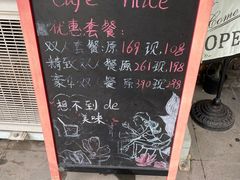 Cafe Nice
优惠套餐:
双人套餐:原169现:108
精致双人餐 原261现198
豪华双人餐 原390现298
想不到de
美味
OPE